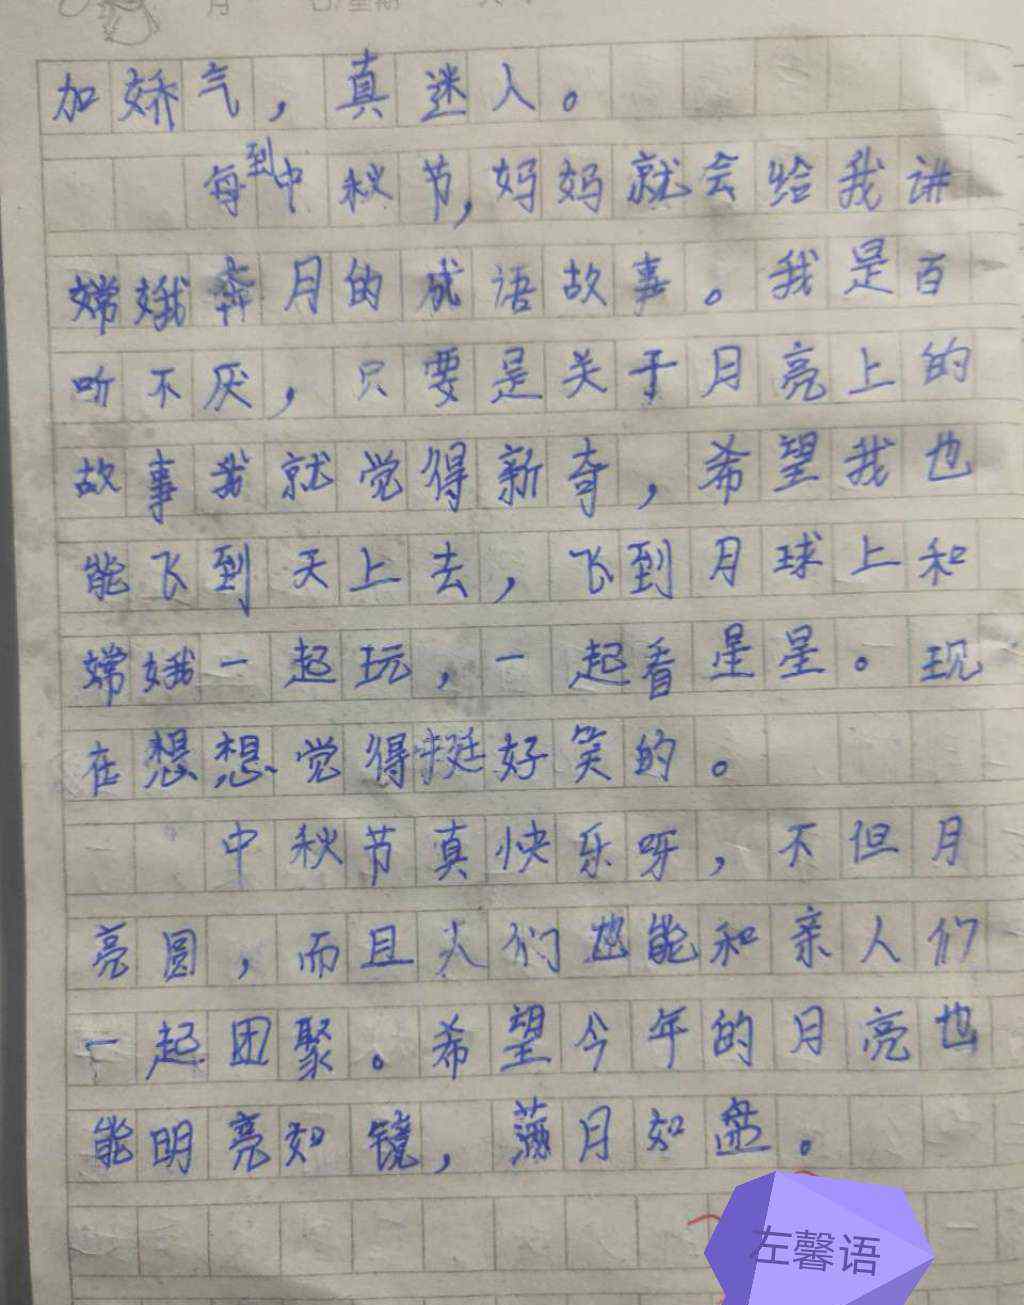 加娇气，真迷人。
每到中秋节，妈妈就会给我讲
嫦娥奔月的成语故事。我是百
听不厌，只要是关于月亮上的
故事我就觉得新奇，希望我也
能飞到天上去，飞到月球上和
嫦娥一起玩，一起看星星。现
在想想觉得挺好笑的。
中秋节真快乐呀，不但月
亮圆，而且人们也能和亲人们
一起团聚。希望今年的月亮也
能明亮如镜，满月如盘。
左馨语